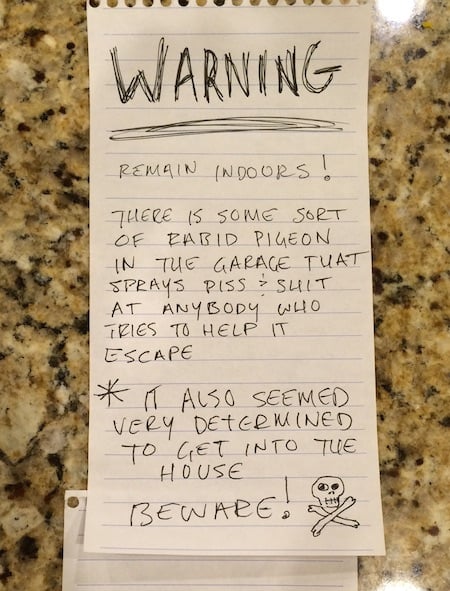 WARNING
REMAIN INDOORS!
THERE IS SOME SORT
OF RABID PIGEON
IN THE GARAGE THAT
SPRAYS PISS & SHIT
AT ANYBODY WHO
TRIES TO HELP IT
ESCAPE
* IT ALSO SEEMED
VERY DETERMINED
TO GET INTO THE
HOUSE
BEWARE!